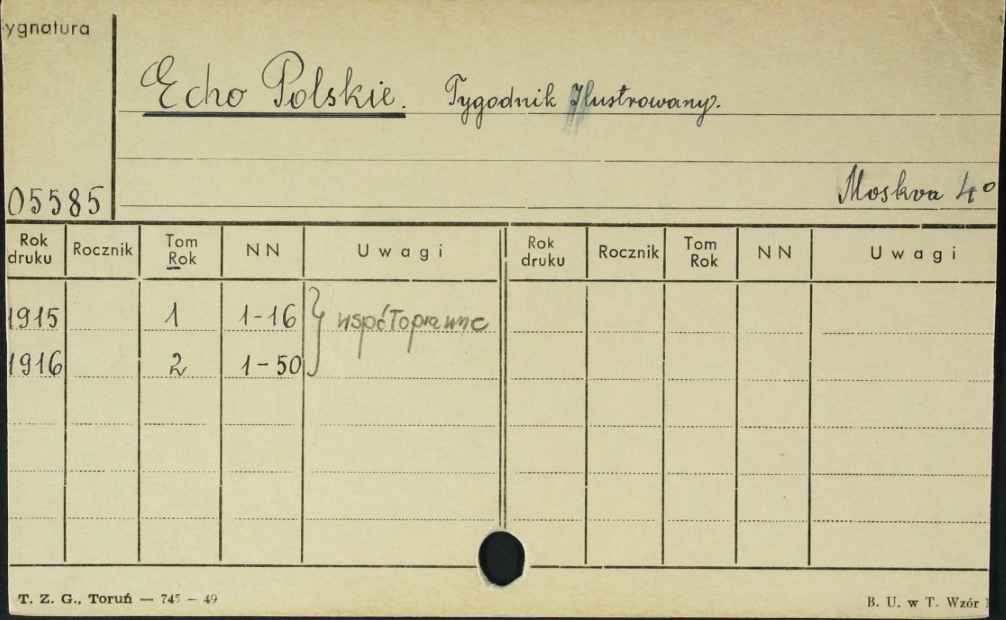 ygnatura
Echo Polskie. Tygodnik Ilustrowany.
05585
Moskva 4°
Rok druku Rocznik Tom Rok NN Uwagi Rok druku Rocznik Tom Rok NN Uwagi
1915 1 1-16 współoprawne
1916 2 1-50
T. Z. G., Toruń — 745 — 49
B. U. w T. Wzór